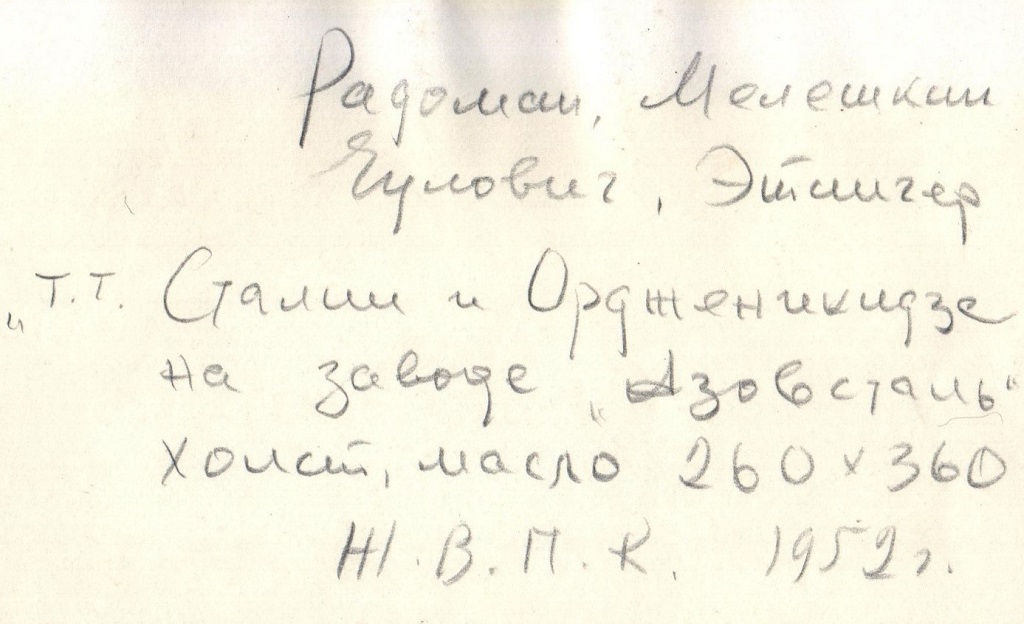 Радоман, Мелешкин
Гулович, Этингер
„т.т. Сталин и Орджоникидзе
на заводе „Азовсталь“
холст, масло 260 x 360
Ж.В.П.К. 1952 г.